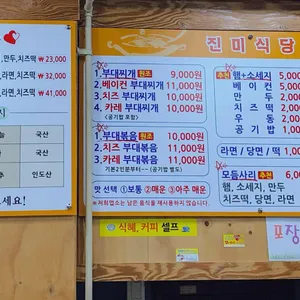 , 만두, 치즈떡 ₩23,000
라면, 치즈떡 ₩32,000
라면, 치즈떡 ₩41,000
국산
국산
인도산
세요!
진미식당
1. 부대찌개 원조 9,000원
2. 베이컨 부대찌개 10,000원
3. 치즈 부대찌개 10,000원
4. 카레 부대찌개 10,000원
(공기밥 포함)
1. 부대볶음 원조 10,000원
2. 치즈 부대볶음 11,000원
3. 카레 부대볶음 11,000원
기본2인분부터~ (공기밥 별도)
맛 선택 ①보통 ②매운 ③아주 매운
※저희업소는 남은 음식을 재사용하지 않습니다.
추천 햄+소세지 5,00
베이컨 5,00
만두 2,00
치즈떡 2,00
우동 2,00
공기밥 1,00
라면 / 당면 / 떡 1,00
추천 모듬사리 6,0
햄, 소세지, 만두
치즈떡, 당면, 라면
식혜, 커피 셀프
포장